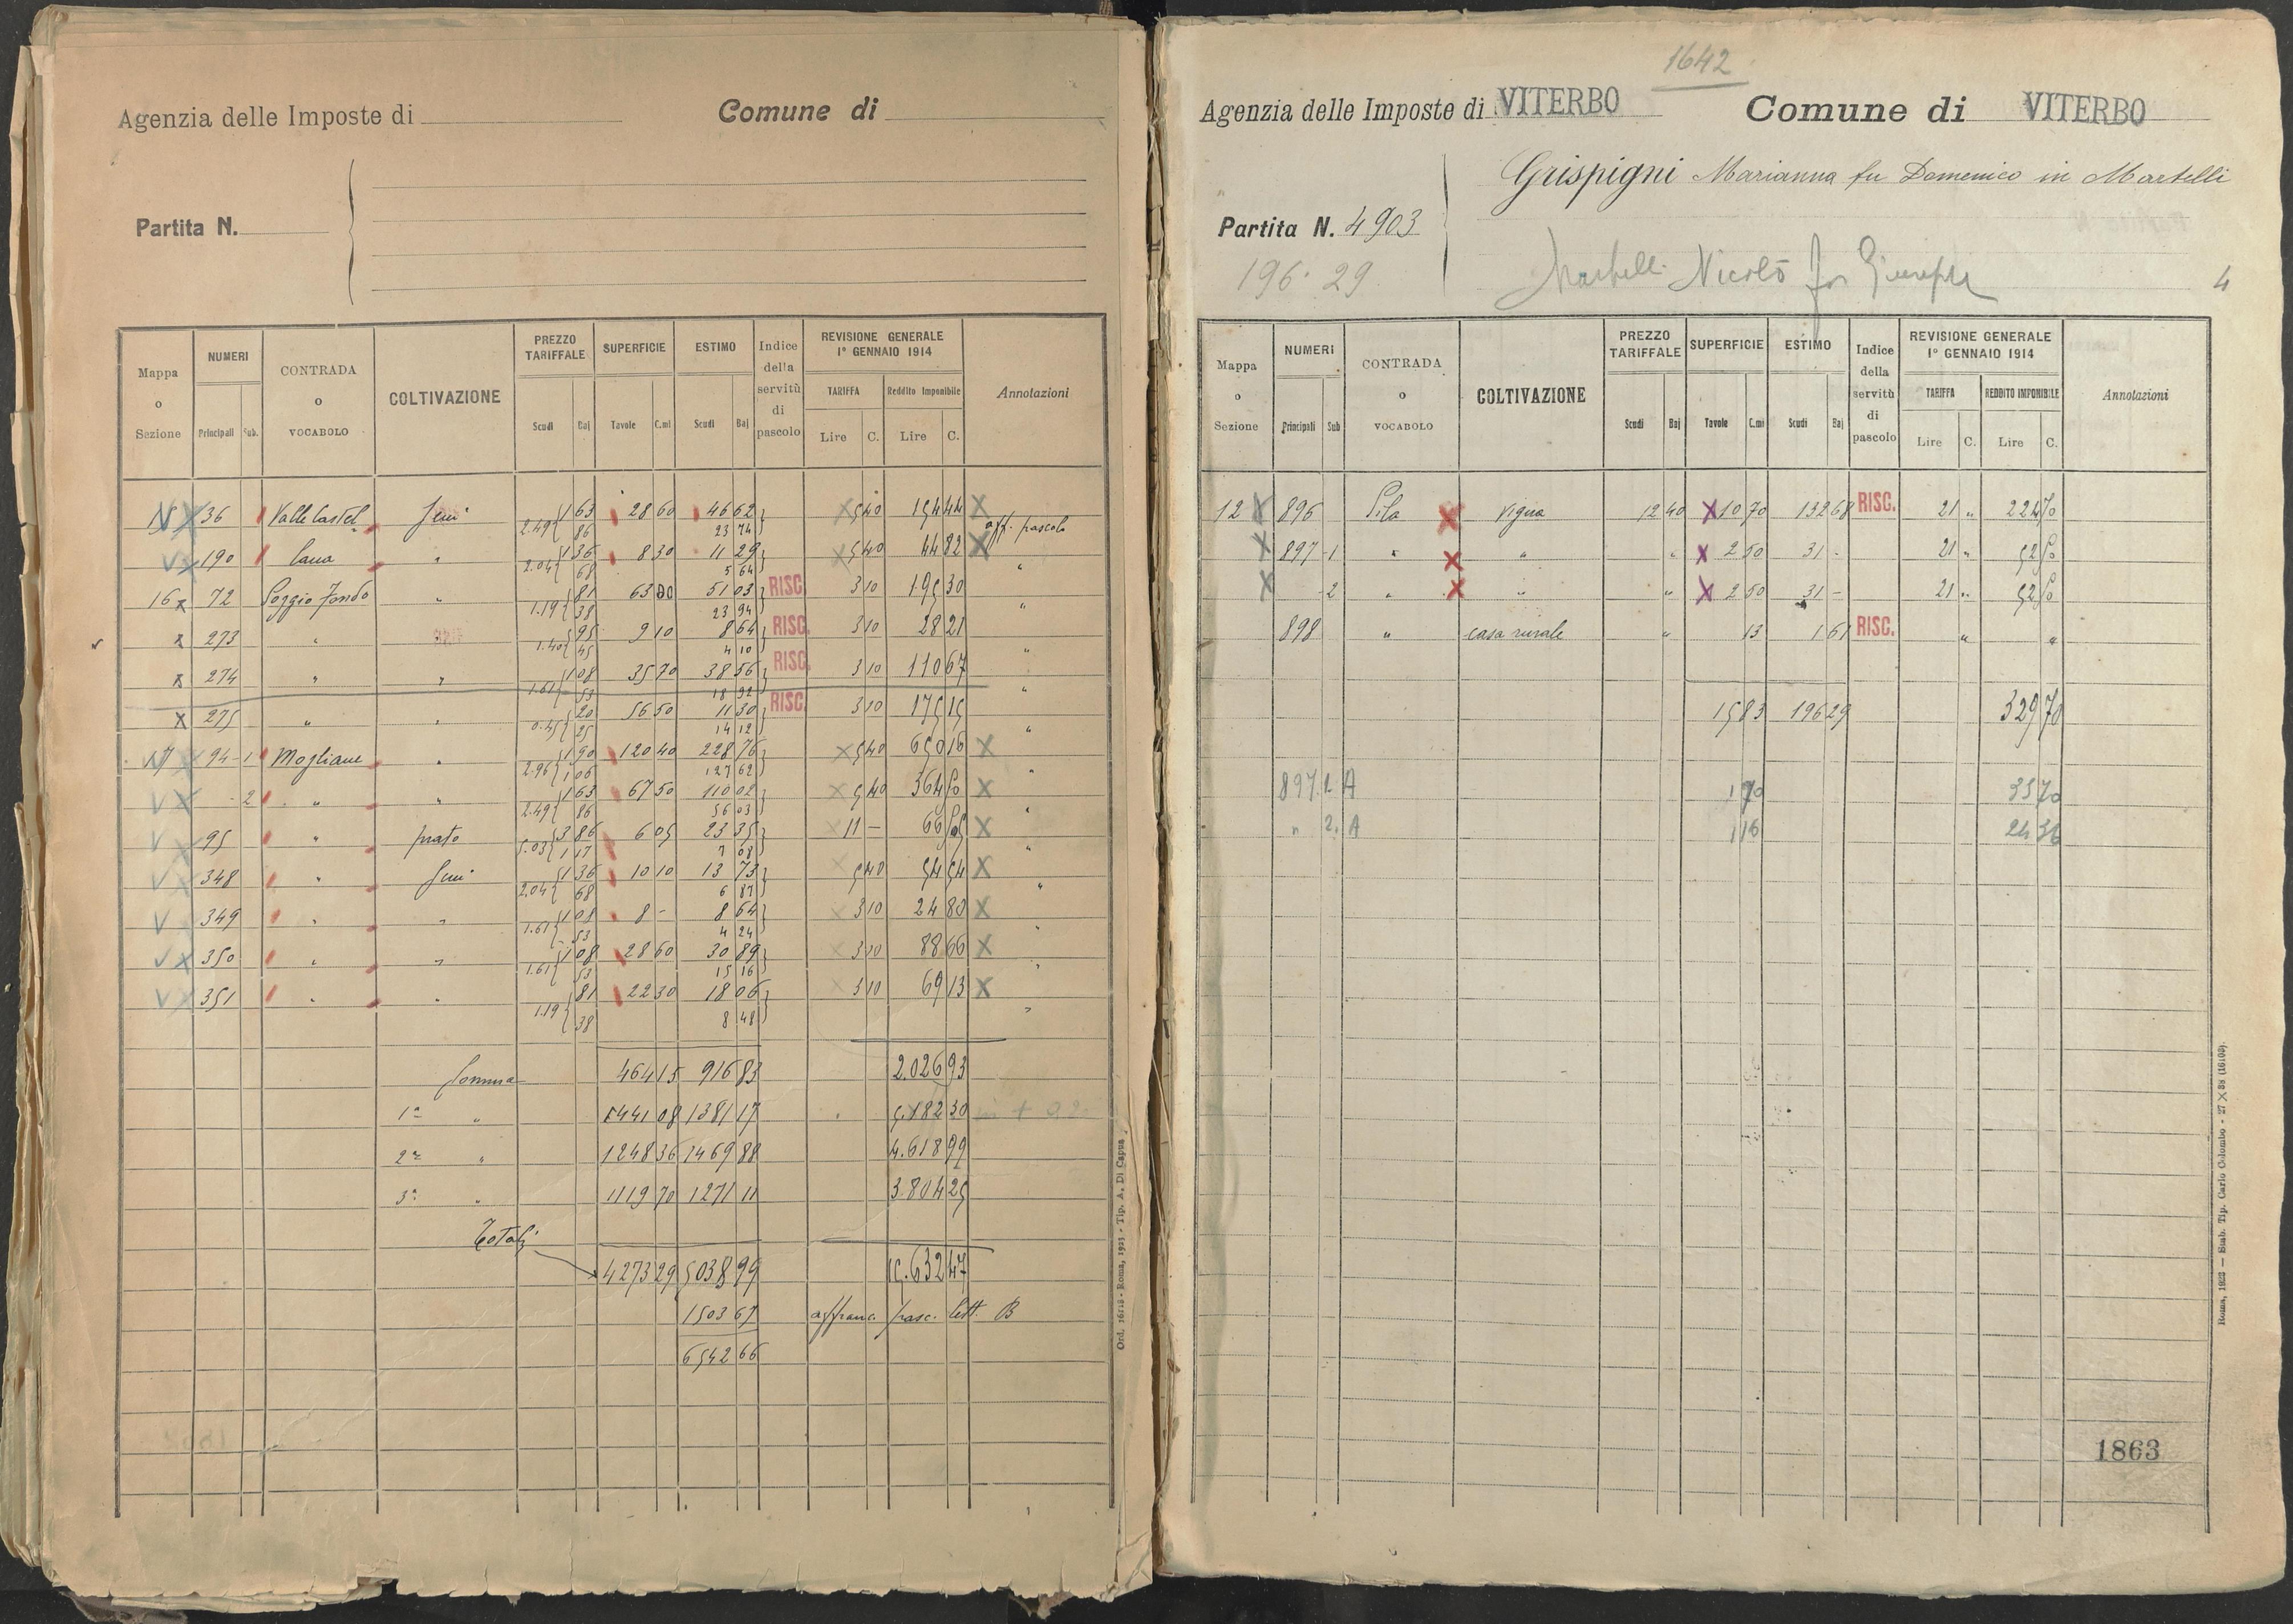 Agenzia delle Imposte di Comune di
Partita N.
Mappa o Sezione NUMERI Principali Sub. CONTRADA o VOCABOLO COLTIVAZIONE PREZZO TARIFFALE Scudi Baj SUPERFICIE Tavole C.mi ESTIMO Scudi Baj Indice della servitù di pascolo REVISIONE GENERALE 1º GENNAIO 1914 TARIFFA Lire C. Reddito Imponibile Lire C. Annotazioni
36 Valle Castel 1 63 28 60 46 62 5 40 154 44 X
2.49 86 23 74 aff. pascolo
190 1 36 8 30 11 29 5 40 44 82 X
2.04 68 5 64 "
16 x 72 Poggio Fondo " 81 63 00 51 03 RISC. 3 10 195 30
1.19 38 23 94 "
x 273 " 95 9 10 8 64 RISC. 3 10 28 21
1.40 45 4 10 "
x 274 " " 1 08 35 70 38 56 RISC. 3 10 110 67
1.61 53 18 92 "
x 275 " " 20 56 50 11 30 RISC. 3 10 175 15
0.45 25 14 12 "
94 1 Mogliane " 1 90 120 40 228 76 5 40 650 16 X
2.96 1 06 127 62 "
2 " " 1 63 67 50 110 02 5 40 364 50 X
2.49 86 56 03 "
95 " prato 3 86 6 05 23 35 11 – 66 55 X
5.03 1 17 7 08 "
348 " 1 36 10 10 13 73 5 40 54 54 X
2.04 68 6 87 "
349 " " 1 08 8 – 8 64 3 10 24 80 X
1.61 53 4 24 "
350 " " 1 08 28 60 30 89 3 10 88 66 X
1.61 53 15 16 "
351 " " 81 22 30 18 06 3 10 69 13 X
1.19 38 8 48 "
Somma 464 15 916 83 2.026 93
1ª " 1441 08 1381 17 5.182 30
2ª " 1248 36 1469 88 4.618 99
3ª " 1119 70 1271 11 3.804 25
Totali 4273 29 5038 99 15.632 47
1503 67 affranc. pasc. lett. B
6542 66
Ord. 16718 - Roma, 1925 - Tip. A. Di Capua
1642
Agenzia delle Imposte di VITERBO Comune di VITERBO
Grispigni Marianna fu Domenico in Martelli
Partita N. 4903
196.29 Martelli Nicolò fu Giuseppe 4
Mappa o Sezione NUMERI Principali Sub CONTRADA o VOCABOLO COLTIVAZIONE PREZZO TARIFFALE Scudi Baj SUPERFICIE Tavole C.mi ESTIMO Scudi Baj Indice della servitù di pascolo REVISIONE GENERALE 1º GENNAIO 1914 TARIFFA Lire C. REDDITO IMPONIBILE Lire C. Annotazioni
12 X 896 Pila X vigna 12 40 X 10 70 132 68 RISC. 21 " 224 70
X 897 1 " X " " X 2 50 31 – 21 " 52 50
X 2 " X " " X 2 50 31 – 21 " 52 50
898 " casa rurale " 13 1 61 RISC. " "
15 83 196 29 329 70
897 1 A 1 70 35 70
" 2. A 1 16 24 36
1863
Roma, 1923 — Stab. Tip. Carlo Colombo - 27 X 38 (16103).